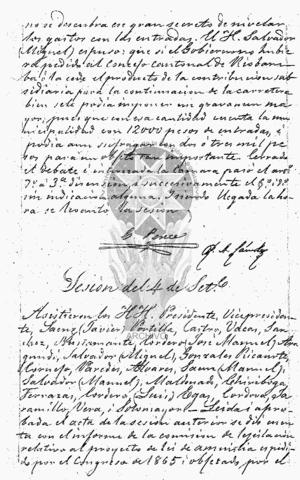 no se descubra en gran secreto de nivelar
los gastos con las entradas. El H. Salvador
(Miguel) espuso: que si el Gobierno no hubie-
ra pedido al Concejo cantonal de Riobam-
ba, o la cede el producto de la contribucion sub-
sidiaria para la continuacion de la carretera
bien se podia imponer un gravamen ma-
yor, pues que con esa cantidad cuenta la mu-
nicipalidad con 12000 pesos de entradas, i
podia aun sufragar los dos ó tres mil pe-
sos para un objeto tan importante. Cerrado
el debate i en la Cámara pasó el art.
7º á 3ª discusion, i sucesivamente el 8º i 9º
sin indicacion alguna. Siendo llegada la ho-
ra se levantó la sesion
C. Ponce
Sesion del 4 de Set.e
Asistieron los HH. Presidente, Vicepresiden-
te, Saenz (Javier) Portilla, Castro, Varas, San-
chez, Bustamante, Cordero José Manuel,
Salvador (Miguel), Gonzales
Cornejo, Paredes, Alvares, Saenz (Manuel),
Salvador (Manuel), Maldonado, Chiriboga,
Terrazas, Cordero (Luis) Egas, Cordova, Ja-
ramillo, Vera, i Sotomayor. Leida i apro-
bada el acta de la sesion anterior se dio cuen-
ta con el informe de la comision de lejislacion
relativo al proyecto de lei de amnistia espedi-
do por el Congreso de 1865 i objetado por el
ARCHIVO